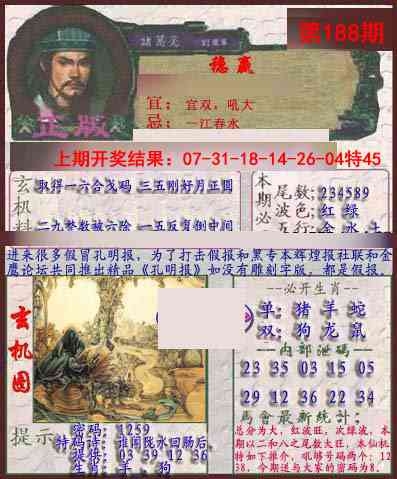 第188期
诸葛亮
稳赢
正版
宜：宜双，吼大
忌：一江春水
上期开奖结果：07-31-18-14-26-04特45
玄机料
取得一六合戏码 三五刚好月正圆
本期必
尾数:234589
波色:红 绿
五行:金 水 土
进来很多假冒孔明报，为了打击假报和黑专本辉煌报社联和金
鹰论坛共同推出精品《孔明报》如没有雕刻字版，都是假报。
玄机图
--必开生肖--
单：猪 羊 蛇
双：狗 龙 鼠
--内部泄码--
23 35 03 15 05
29 12 36 22 34
马会最新统计:
总分为大，红波旺，次绿波，本
期以二和八之尾数大旺，本仙机
特如下推介，吼够号码两个：12
38，今期送与大家的密码为8。
提示
密码：1259
特码诗：谁闻陇水回肠后，
提供：03 39 12 36
生肖：羊、狗